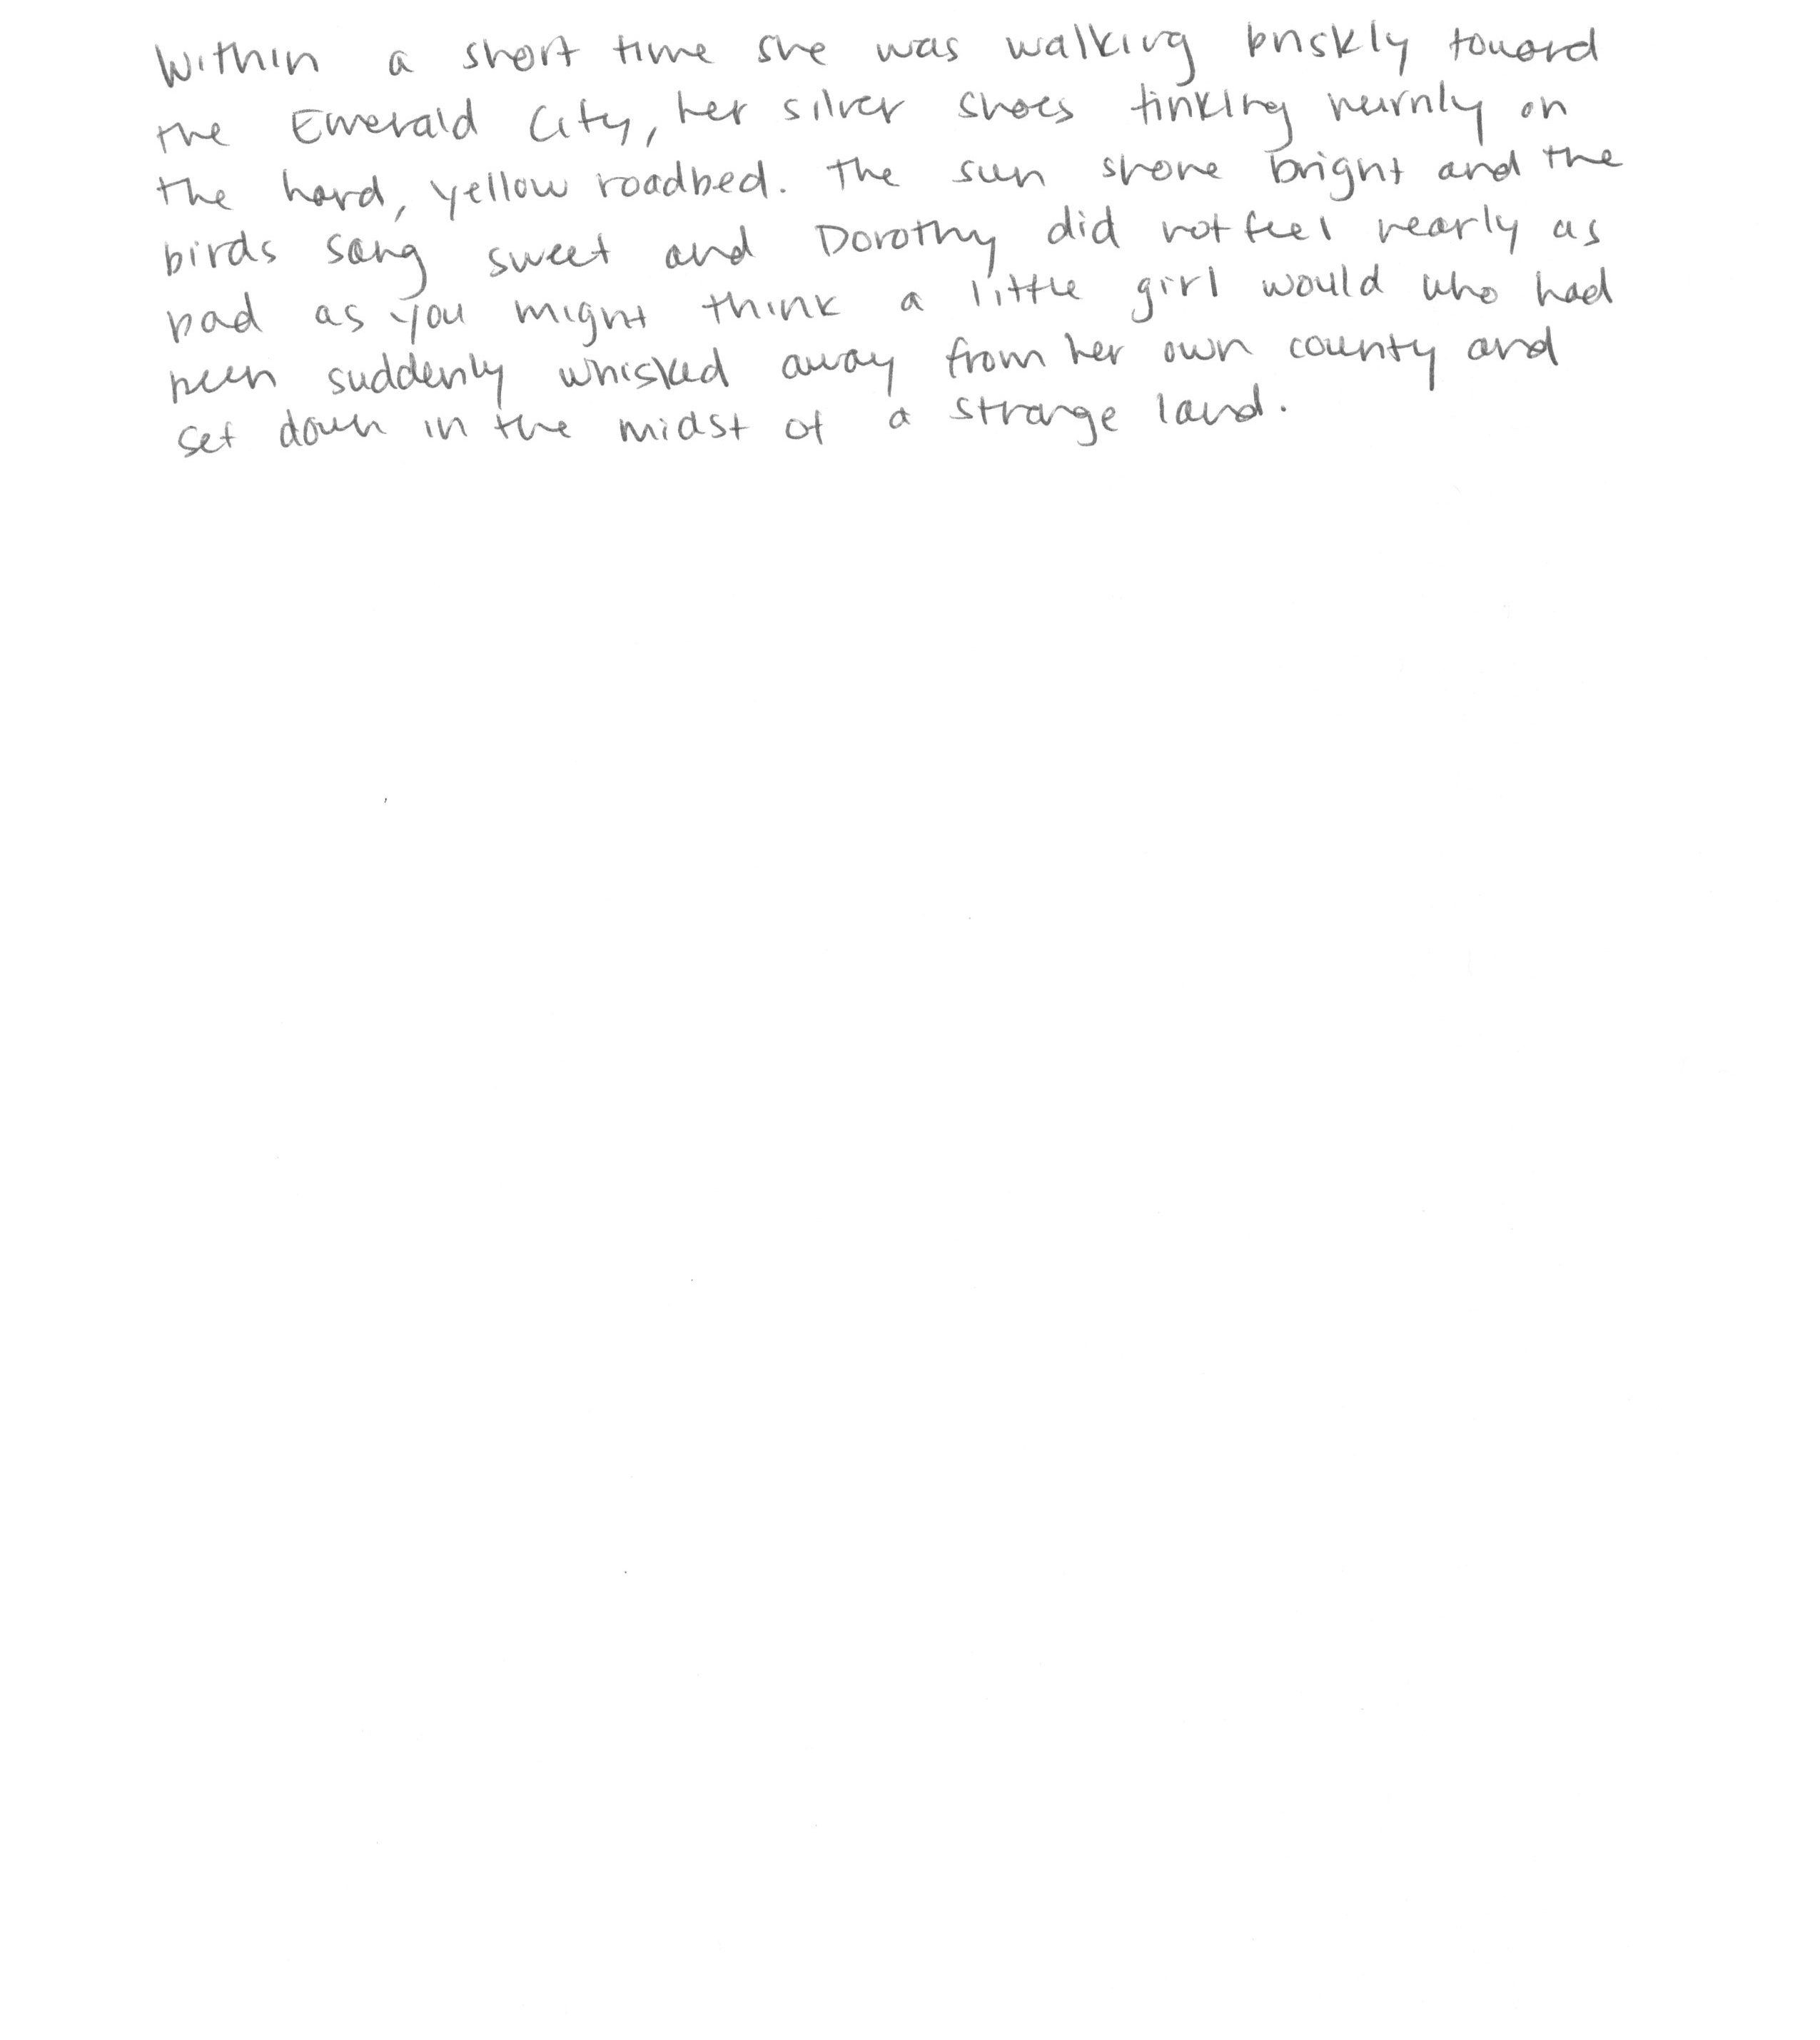 Within a short time she was walking briskly toward
the Emerald City, her silver shoes tinkling merrily on
the hard, yellow roadbed. The sun shone bright and the
birds sang sweet and Dorothy did not feel nearly as
bad as you might think a little girl would who had
been suddenly whisked away from her own county and
set down in the midst of a strange land.